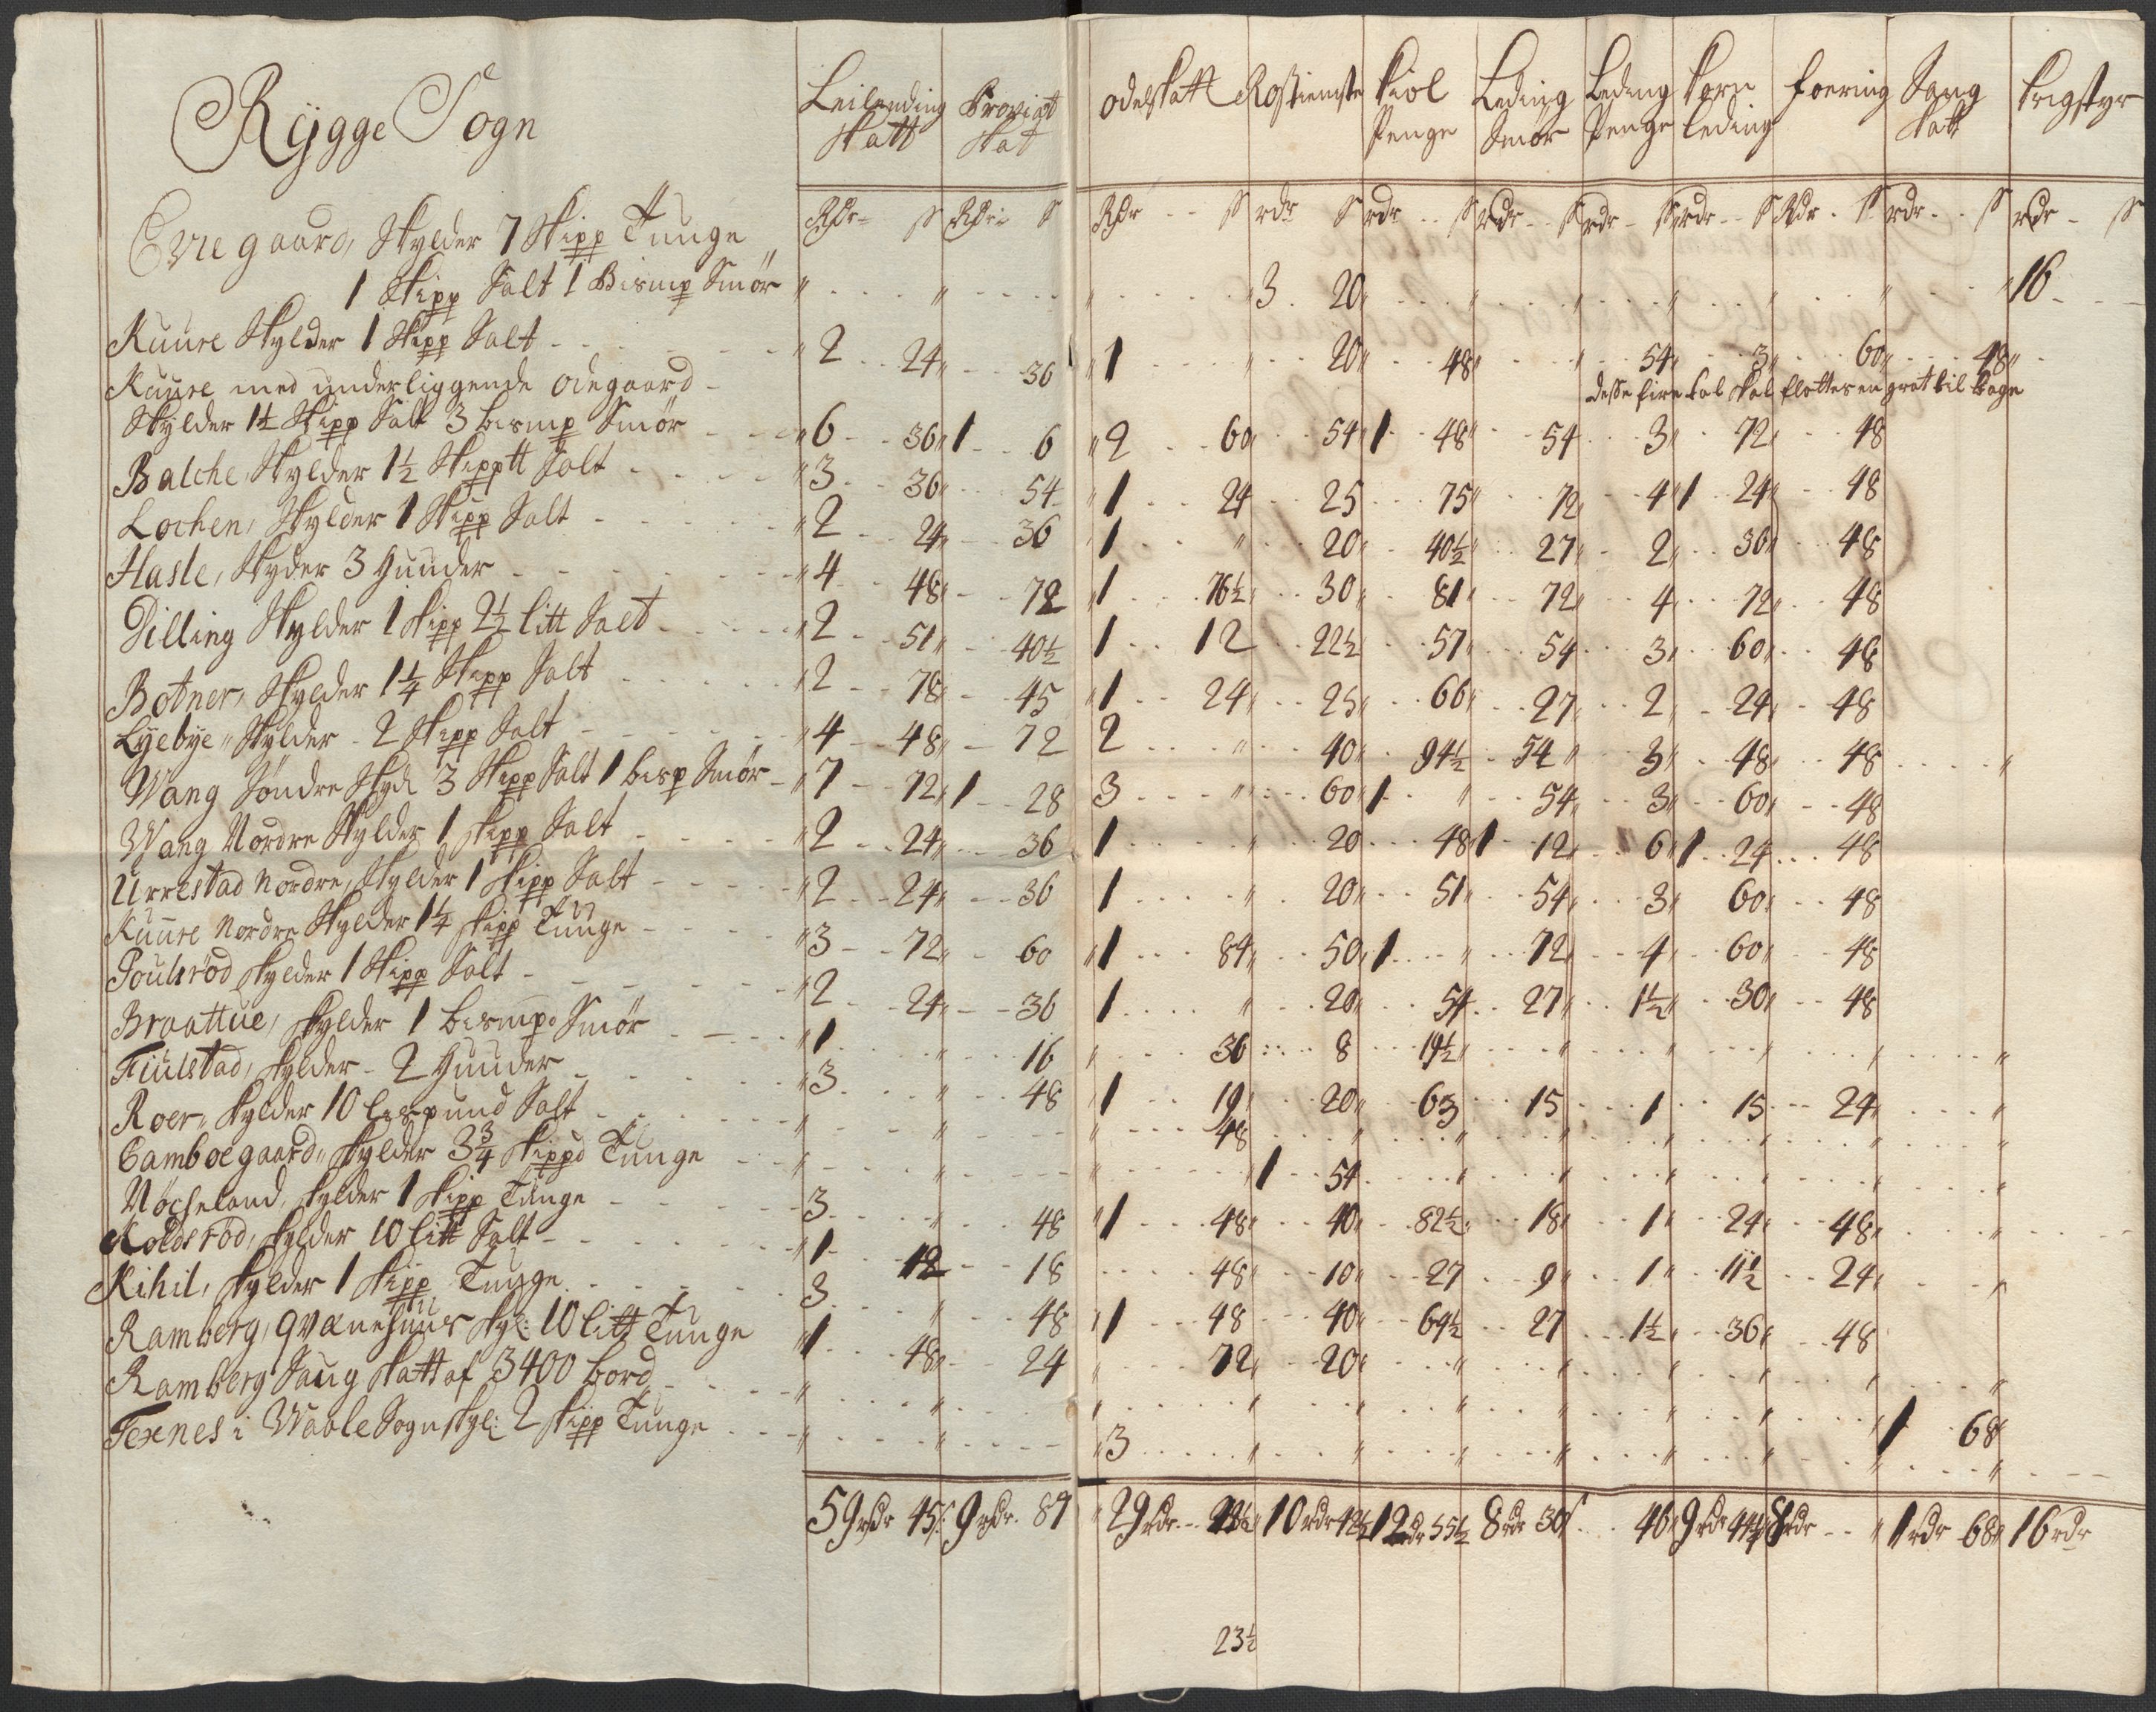 Rÿgge Sogn
Leilending Skatt | Proviat Skat | odelskatt | Rostienste | Skiol Penge | Leding Smør | Leding Penge | Korn leding | foering | Saug Skatt | Krigstyr
Rdr S | Rdr S | Rdr S | rdr S | rdr S | rdr S | rdr S | rdr S | Rdr S | rdr S | rdr S
Evie gaard, Skylder 7 Skipp Tunge
1 Skipp Salt 1 Bismp Smør " " " 3 20 " " " " " " 16
Kuure Skylder 1 Skipp Salt 2 24 " 36 1 " 20 48 " 54 3 60 48
desse fire tal skal flottes en grat tilbage
Kuure med underliggende ødegaard
Skylder 1½ Skipp Salt 3 bismp Smør 6 36 1 6 2 60 54 1 48 54 3 72 48
Balche Skylder 1½ Skipptt Salt 3 36 54 1 24 25 75 72 4 1 24 48
Lochen, Skylder 1 Skipp Salt 2 24 36 1 " 20 40½ 27 2 36 48
Hasle, Skyder 3 Huuder 4 48 72 1 76½ 30 81 72 4 72 48
Dilling Skylder 1 Skipp 2½ litt Salt 2 51 40½ 1 12 22½ 57 54 3 60 48
Botner, Skylder 1¼ Skipp Salt 2 78 45 1 24 25 66 27 2 24 48
Lÿebÿe " Skylder 2 Skipp Salt 4 48 72 2 " 40 94½ 54 3 48 48 "
Wang Søndre Skyd 3 Skipp Salt 1 bisp Smør 7 72 1 28 3 " 60 1 " 54 3 60 48
Wang Nordre Skylder 1 skipp Salt 2 24 36 1 " 20 48 1 12 6 1 24 48
Urrestad Nordre, Skylder 1 Skipp Salt 2 24 36 1 " 20 51 54 3 60 48
Kuure Nordre Skylder 1¼ skipp Tunge 3 72 60 1 84 50 1 " 72 4 60 48
Poulsrød skylder 1 Skipp Salt 2 24 36 1 " 20 54 27 1½ 30 48
Braattue, skylder 1 bismp Smør 1 " 16 " 36 8 19½ " " " " "
Fiulstad, skylder 2 Huuder 3 " 48 1 19 20 63 15 1 15 24 "
Roer, skylder 10 lispund Salt " " " 48 " " " " " " "
Camboegaard " skylder 3¾ skippd Tunge " " " " 1 54 " " " " " "
Nøcheland, skylder 1 skipp Tunge 3 " 48 1 48 40 82½ 18 1 24 48
Koldsrød, skylder 10 litt Salt 1 12 18 48 10 27 9 1 11½ 24 "
Kihil, skylder 1 skipp Tunge 3 " 48 1 48 40 69½ 27 1½ 36 48
Ramberg, qvænehuus skyl: 10 litt Tunge 1 48 24 " 72 20 " " " " " "
Ramberg Saug skatt af 3400 bord " " " " " " " " " 1 68
Texnes i Waale Sogn skyl: 2 skipp Tunge " " 3 " " " " " " "
59 rdr 45 | 9 rdr 84 | 29 rdr | 10 rdr 42½ | 12 rdr 55½ | 8 rdr 30 | 46 | 9 rdr 44½ | 8 rdr | 1 rdr 68 | 16 rdr
23½